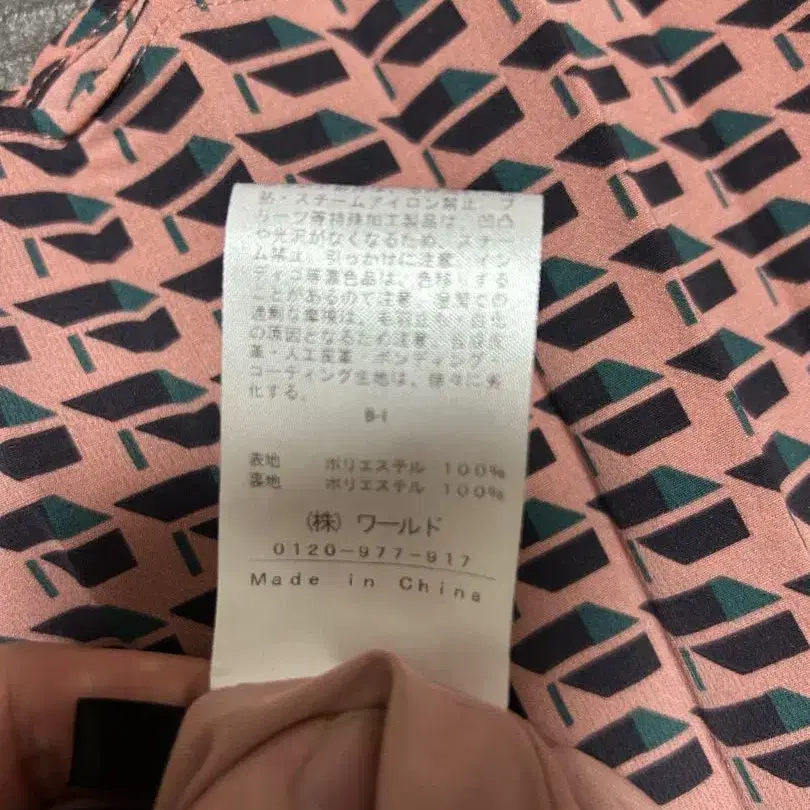 熱・スチームアイロン禁止。プ
リーツ等特殊加工製品は、凹凸
や光沢がなくなるため、スチー
ム禁止。引っかけに注意。イン
ディゴ等濃色品は、色移りする
ことがあるので注意。
過剰な摩擦は、毛羽立
の原因となるため注意。合成皮
革・人工皮革・ボンディング・
コーティング生地は、徐々に劣
化する。
B-I
表地 ポリエステル 100%
裏地 ポリエステル 100%
(株) ワールド
0120-977-917
Made in China